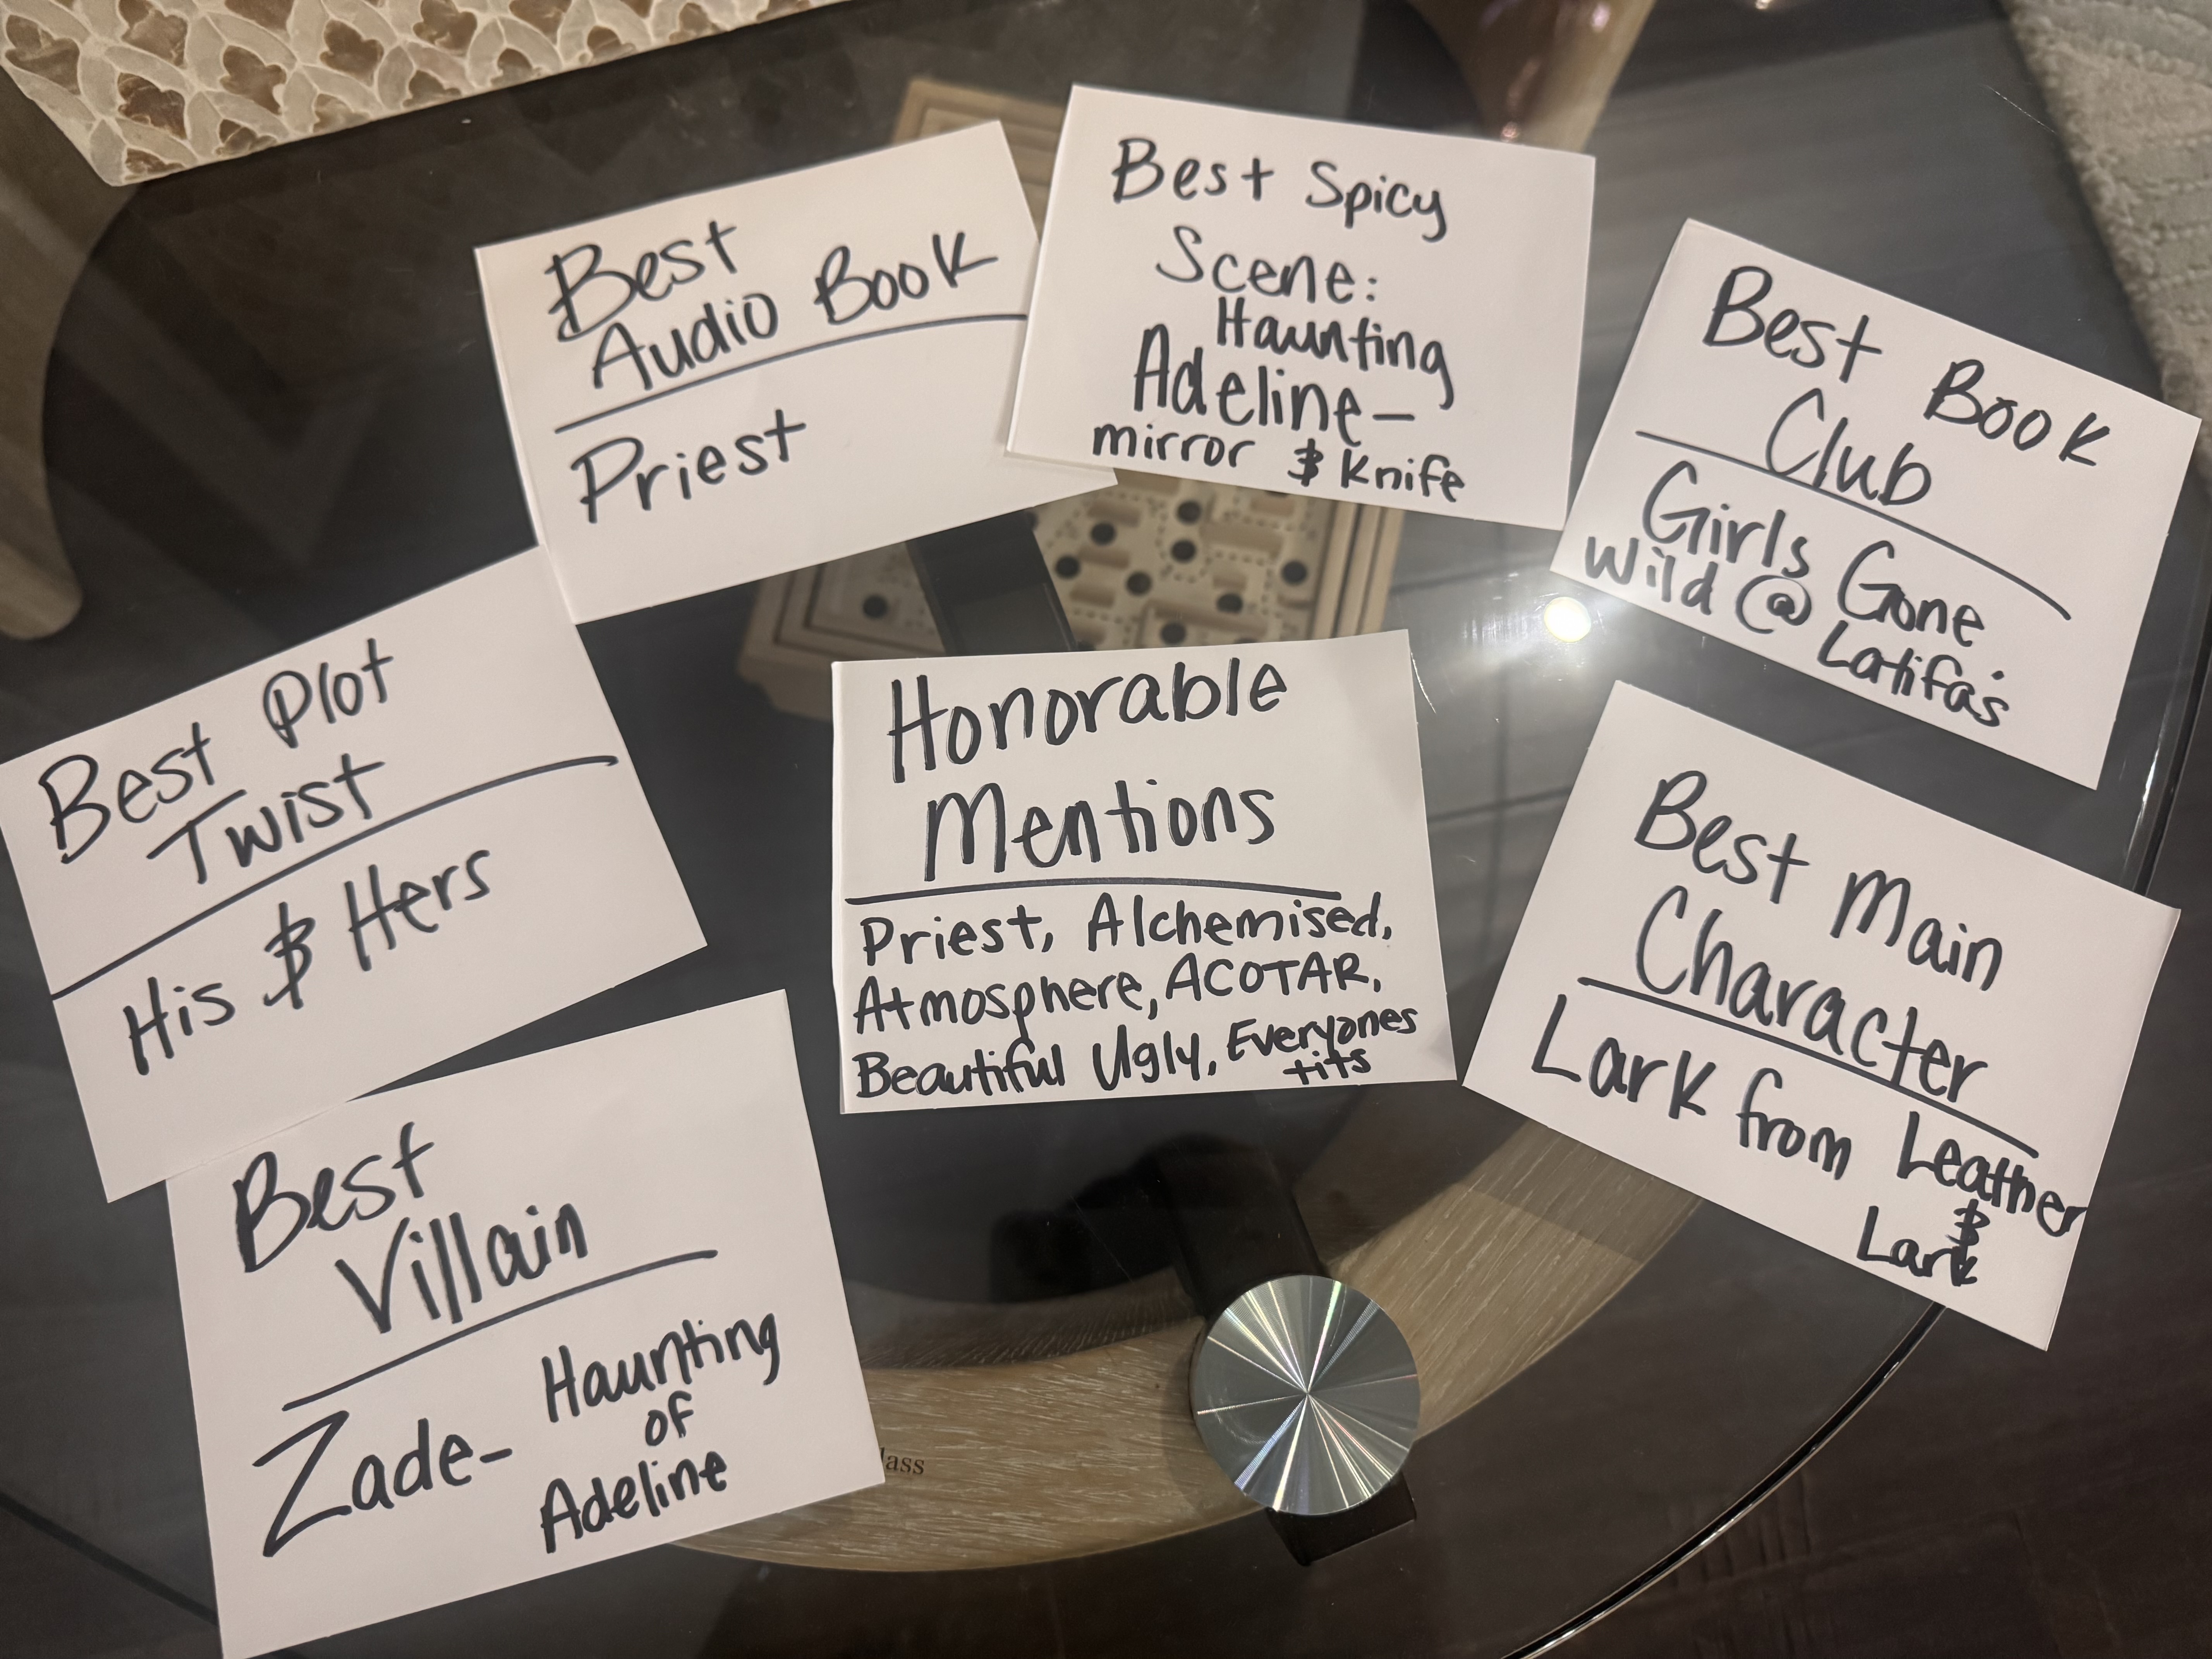 Best
Audio Book
Priest
Best Spicy
Scene:
Haunting
Adeline-
mirror & Knife
Best Book
Club
Girls Gone
Wild @
Latifa's
Best Plot
Twist
His & Hers
Honorable
Mentions
Priest, Alchemised,
Atmosphere, ACOTAR,
Beautiful Ugly, Everyones
tits
Best Main
Character
Lark from Leather
&
Lark
Best
Villain
Zade- Haunting
of
Adeline
lass